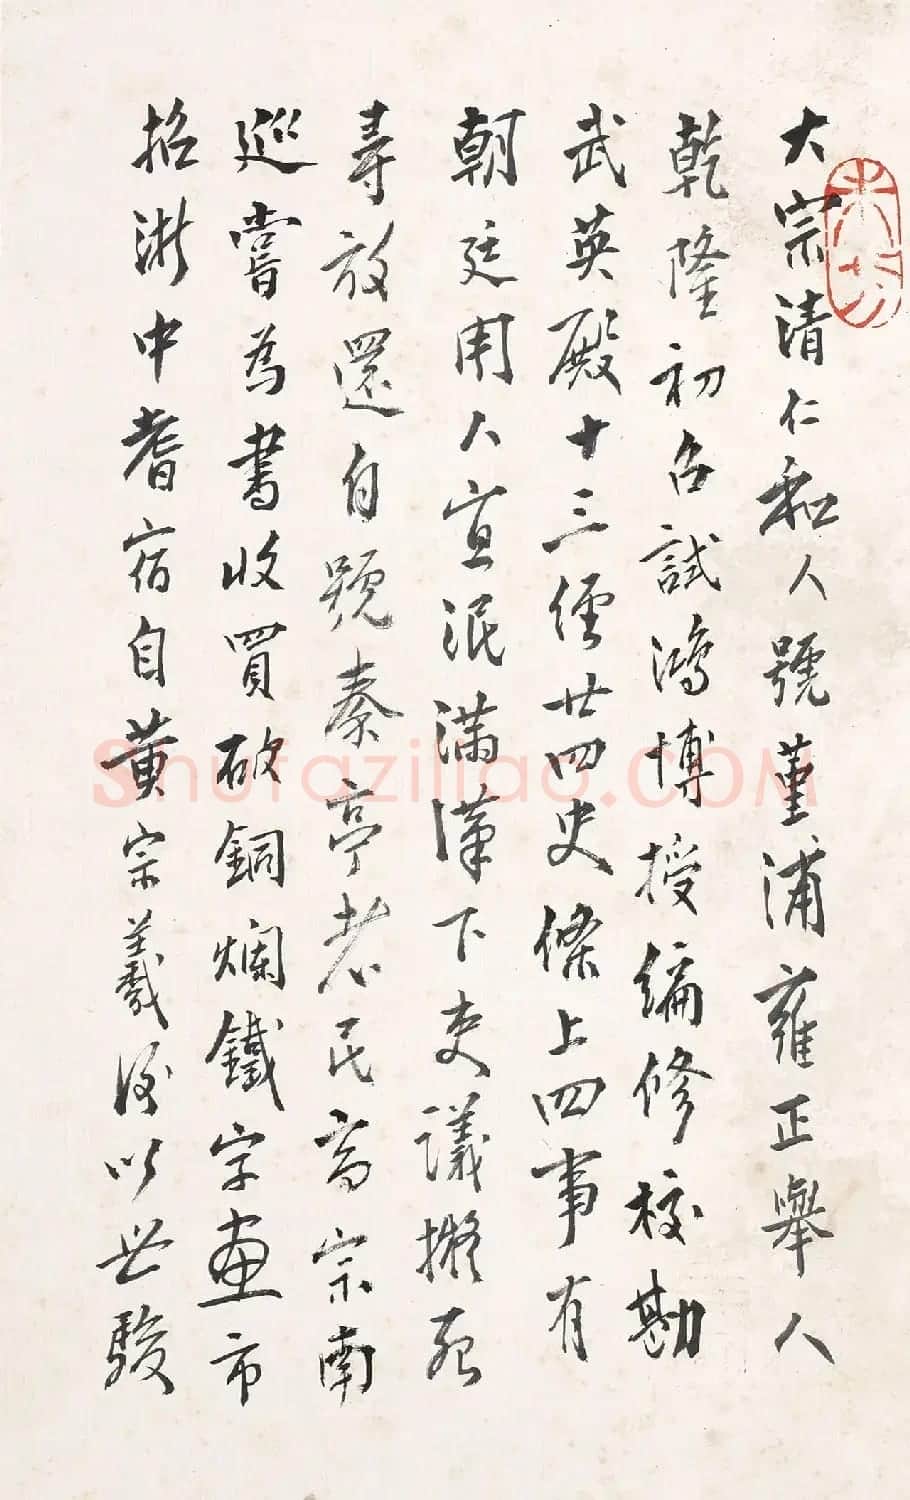 大宗清仁和人號堇浦雍正舉人
乾隆初召試鴻博授編修校勘
武英殿十三經廿四史條上四事有
朝廷用人宜泯滿漢下吏議擬死
尋放還自號秦亭老民高宗南
巡嘗為書收買破銅爛鐵字畫市
招浙中耆宿自黃宗羲後以世駿
shufaziliao.com